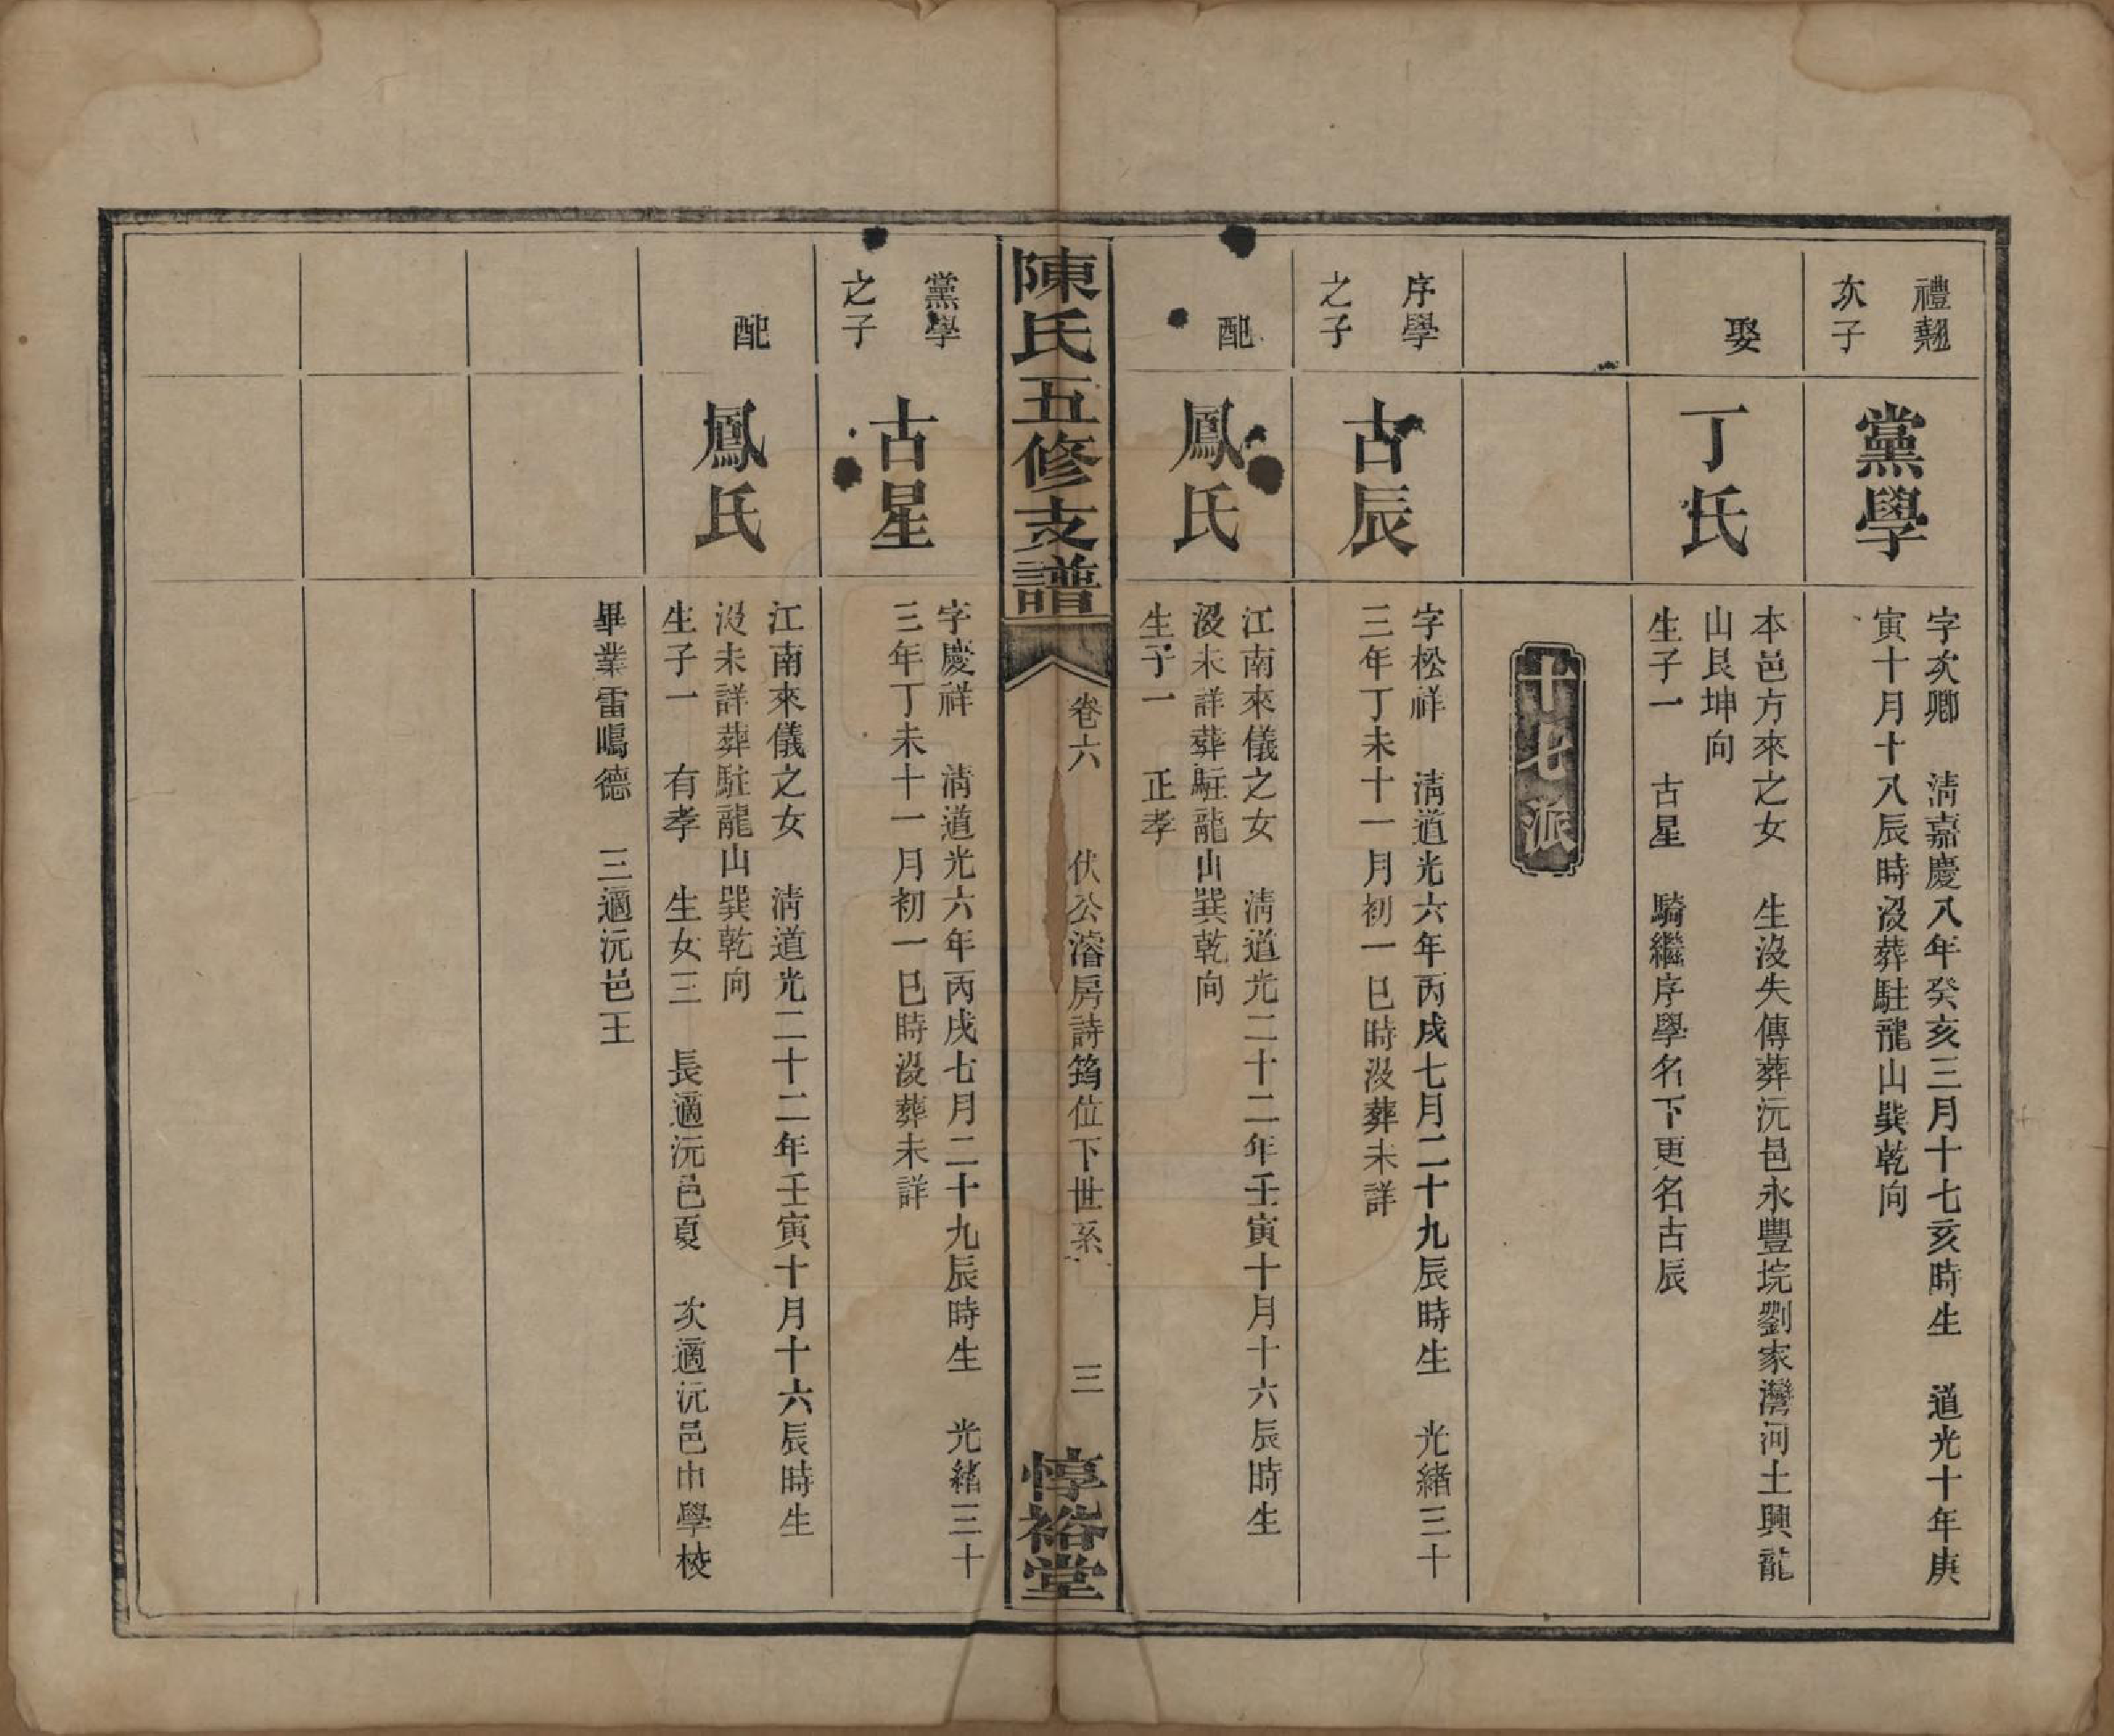 禮翹
次子
黨學
字次卿　清嘉慶八年癸亥三月十七亥時生　道光十年庚
寅十月十八辰時沒葬駐龍山巽乾向
娶
丁氏
本邑方來之女　生沒失傳葬沅邑永豐垸劉家灣河土興龍
山艮坤向
生子一　古星　騎繼序學名下更名古辰
十七派
序學
之子
古辰
字松祥　淸道光六年丙戌七月二十九辰時生　光緒三十
三年丁未十一月初一巳時沒葬未詳
配
鳳氏
江南來儀之女　淸道光二十二年壬寅十月十六辰時生
沒未詳葬駐龍山巽乾向
生子一　正孝
陳氏五修支譜
卷六　伏公濬房詩筠位下世系　三
惇裕堂
黨學
之子
古星
字慶祥　淸道光六年丙戌七月二十九辰時生　光緒三十
三年丁未十一月初一巳時沒葬未詳
配
鳳氏
江南來儀之女　淸道光二十二年壬寅十月十六辰時生
沒未詳葬駐龍山巽乾向
生子一　有孝　生女三　長適沅邑夏　次適沅邑巾學校
畢業雷鳴德　三適沅邑王